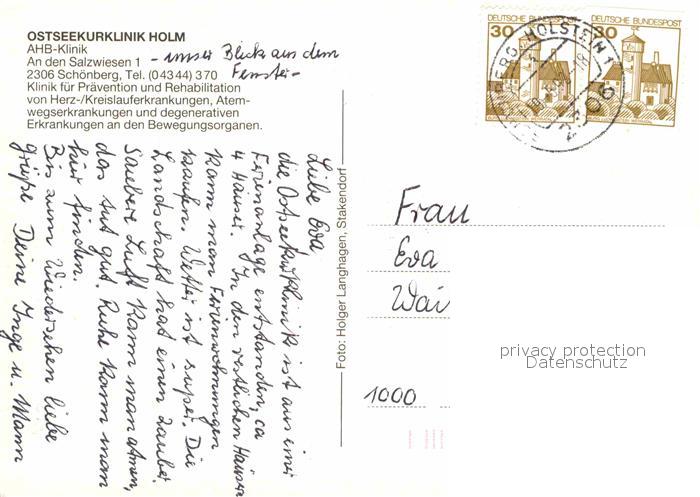 OSTSEEKURKLINIK HOLM
AHB-Klinik
An den Salzwiesen 1 - unser Blick aus dem
2306 Schönberg, Tel. (04344) 370 Fenster -
Klinik für Prävention und Rehabilitation
von Herz-/Kreislauferkrankungen, Atem-
wegserkrankungen und degenerativen
Erkrankungen an den Bewegungsorganen.
Liebe Eva
die Ostseekurklinik ist aus einer
Ferienanlage entstanden, ca
4 Häuser. In den restlichen Häuser
kann man Ferienwohnungen
kaufen. Wetter ist super. Die
Landschaft hat einen Zauber.
Saubere Luft kann man atmen,
das tut gut. Ruhe kann man
hier finden.
Bis zum Wiedersehen liebe
Grüße Deine Inge u. Mann
Foto: Holger Langhagen, Stakendorf
DEUTSCHE BUNDESPOST
30
DEUTSCHE BUNDESPOST
30
HOLSTEIN 1
2306
Frau
Eva
Wai
privacy protection
Datenschutz
1000